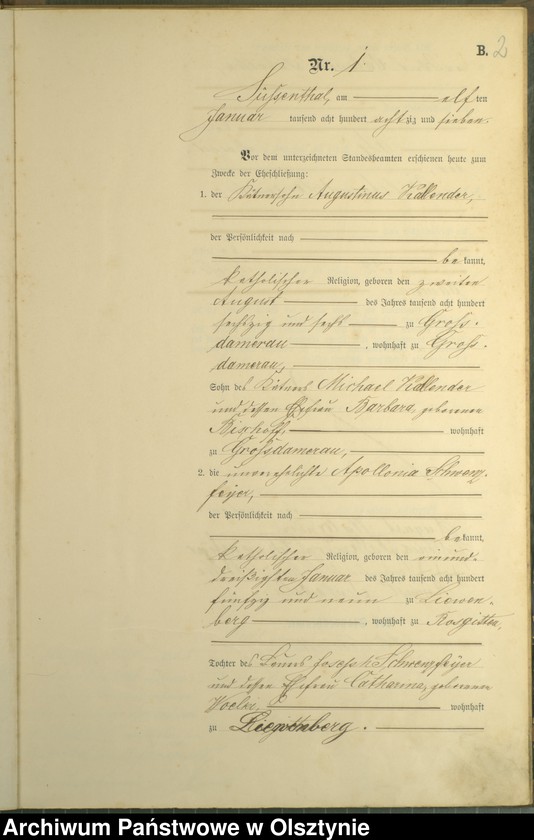 B. 2
Nr. 1.
Süssenthal, am elf ten
Januar tausend acht hundert achtzig und sieben.
Vor dem unterzeichneten Standesbeamten erschienen heute zum
Zwecke der Eheschließung:
1. der Kätnersohn Augustinus Kallender,
der Persönlichkeit nach
be kannt,
katholischer Religion, geboren den zweiten
August des Jahres tausend acht hundert
sechszig und sechs zu Gross-
damerau, wohnhaft zu Gross-
damerau,
Sohn des Kätners Michael Kallender
und dessen Ehefrau Barbara, geborener
Bischoff, wohnhaft
zu Grossdamerau,
2. die unverehelichte Apollonia Schwenz-
feyer,
der Persönlichkeit nach
be kannt,
katholischer Religion, geboren den einund-
dreißigsten Januar des Jahres tausend acht hundert
fünfzig und neun zu Liewen-
berg, wohnhaft zu Rosgitten,
Tochter des Bauers Joseph Schwenzfeyer
und dessen Ehefrau Catharina, geborener
Woelki, wohnhaft
zu Liewenberg.
Archiwum Państwowe w Olsztynie